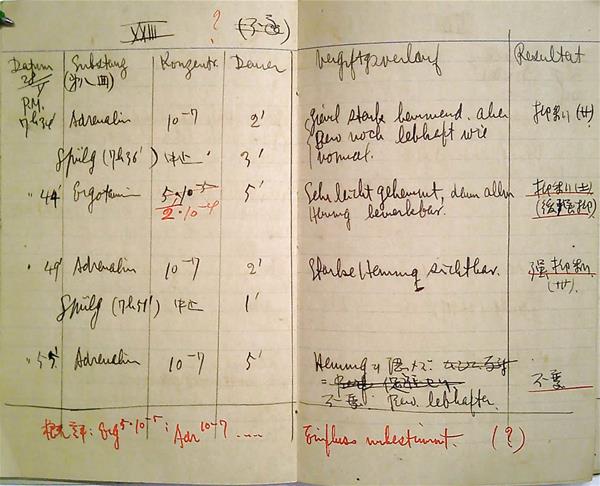 XXIII ? (不變)
Datum Substanz Konzentr. Dauer Vergiftgsverlauf Resultat
28/V (第八回)
P.M.
7h34' Adrenalin 10⁻⁷ 2' Ziel stark hemmend. aber
Bew noch lebhaft wie
vormal. 抑制 (卅)
Spülg (7h36') 中止 3'
" 44' Ergotamin 5.10⁻⁵ 5' Sehr leicht gehemmt, dann allm
2·10⁻⁴ Hemung bemerkbar. 抑制 (±)
" 49' Adrenalin 10⁻⁷ 2' Starke Hemung sichtbar. 强抑制
(卅).
Spülg (7h51') 中止 1'
" 55' Adrenalin 10⁻⁷ 5' Hemung
不變: Bew. lebhafter. 不變
概評: Erg 5·10⁻⁵: Adr 10⁻⁷ .... Einfluss unbestimmt. (?)